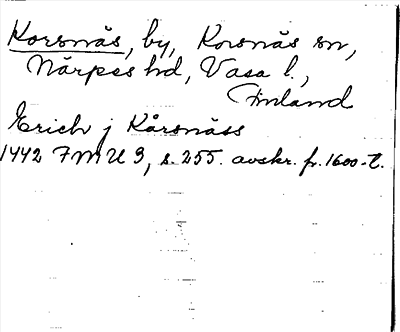 Korsnäs, by, Korsnäs sn,
Närpes hd, Vasa l.,
Finland
Erich j Kårsnäss
1442 FMU 3, s. 255. avskr. fr. 1600-t.